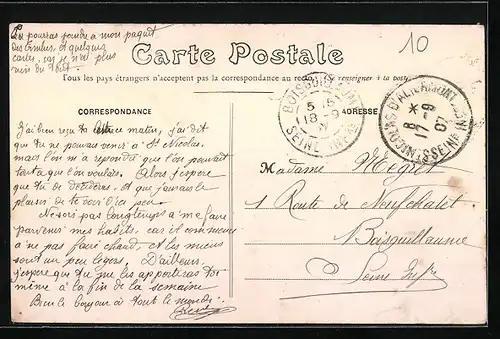 Tu pourras joindre à mon paquet
des timbres et quelques
cartes, car je n'ai plus
rien du tout.
10
Carte Postale
Tous les pays étrangers n'acceptent pas la correspondance au recto. (Se renseigner à la poste)
CORRESPONDANCE
ADRESSE
5 15
18 - 9
SEINE INFRE
8 *
17 - 9
07
ST NICOLAS D'ALIERMONT
SEINE INFRE
J'ai bien reçu ta lettre ce matin, j'ai dit
que tu ne pouvais venir à St Nicolas,
mais l'on m'a répondu que l'on pouvait
tant que l'on voulais. Alors j'espère
que tu te décideras et que j'aurais le
plaisir de te voir d'ici peu.
Ne sois pas longtemps à me faire
parvenir mes habits, car il commence
à ne pas faire chaud, et les miens
sont un peu légers. D'ailleurs,
j'espère que tu me les apporteras toi
même à la fin de la semaine
Bien le bonjour à tout le monde.
René
Madame Négret
1 Route de Neufchatel
Boisguillaume
Seine Infre